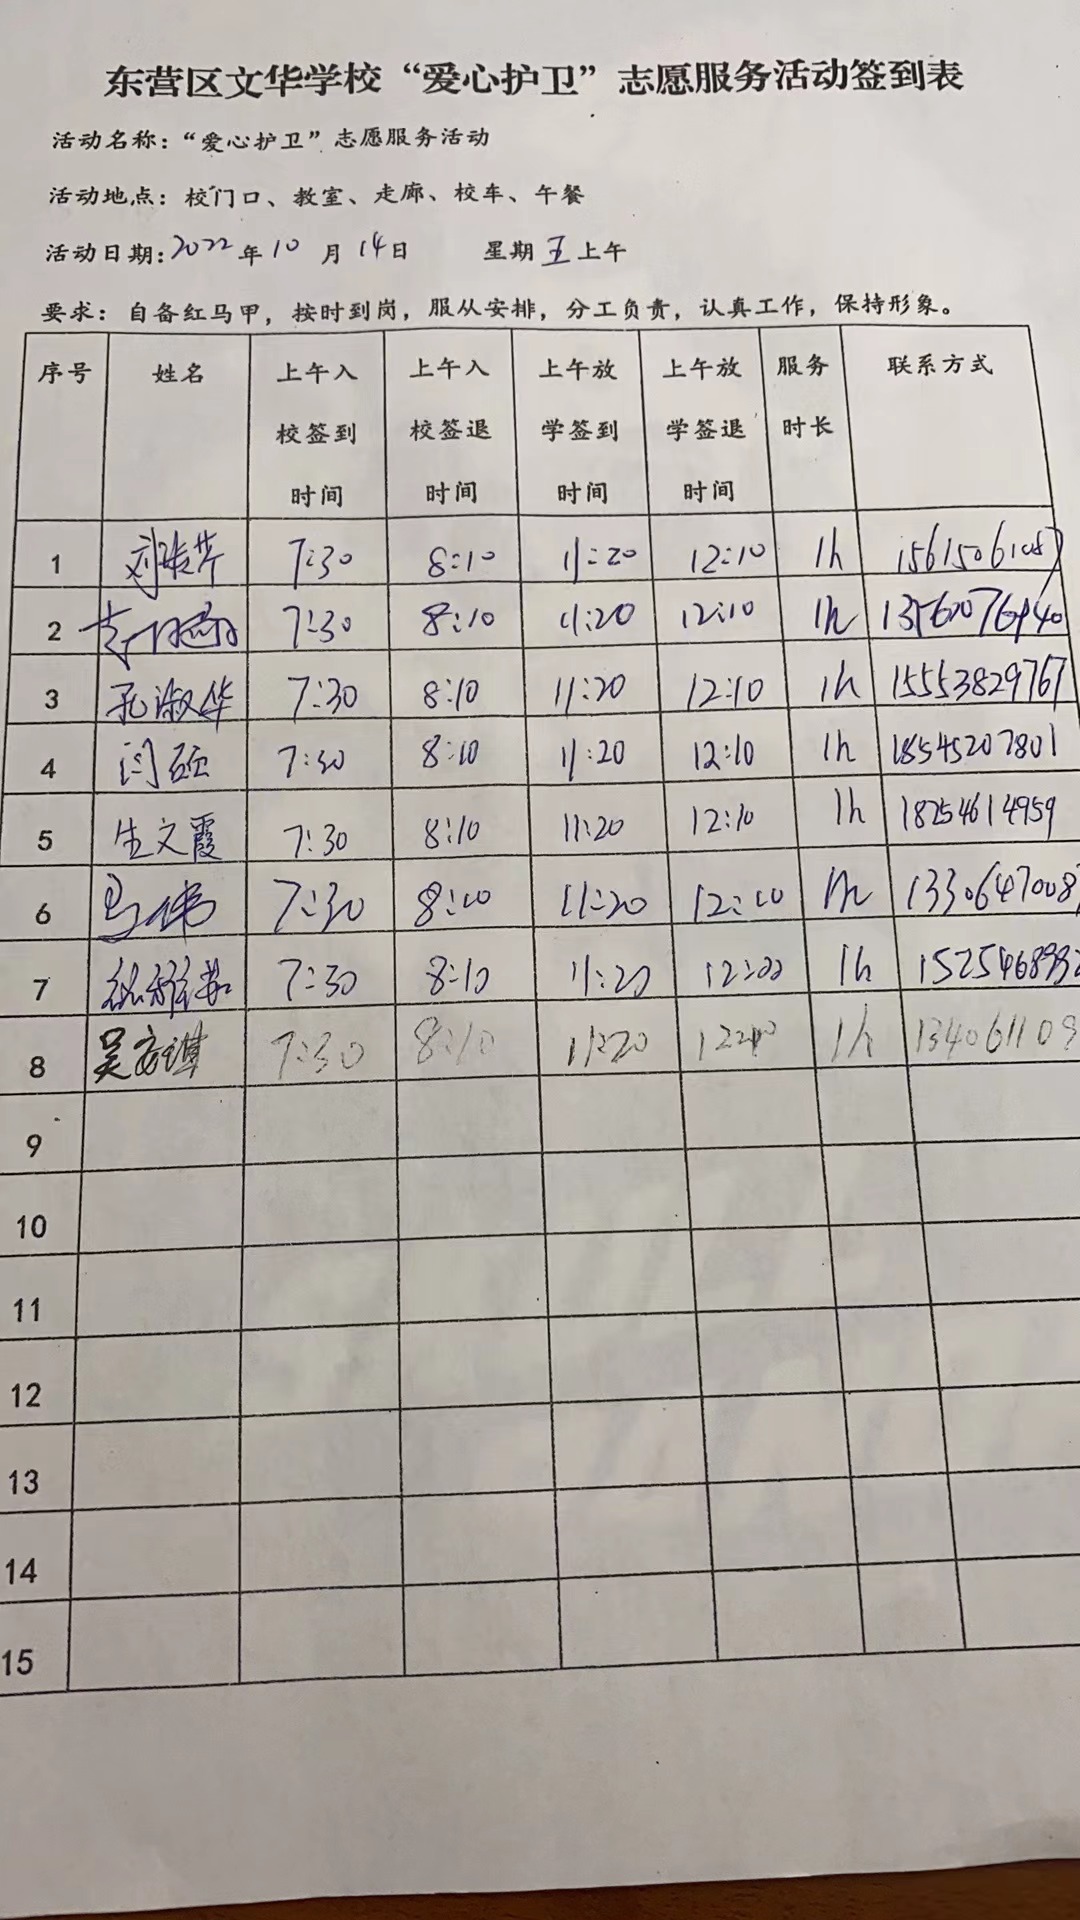 东营区文华学校“爱心护卫”志愿服务活动签到表
活动名称：“爱心护卫”志愿服务活动
活动地点：校门口、教室、走廊、校车、午餐
活动日期：2022年10月14日 星期五上午
要求：自备红马甲，按时到岗，服从安排，分工负责，认真工作，保持形象。
序号 姓名 上午入校签到时间 上午入校签退时间 上午放学签到时间 上午放学签退时间 服务时长 联系方式
1 7:30 8:10 11:20 12:10 1h
2 7:30 8:10 11:20 12:10 1h
3 孔淑华 7:30 8:10 11:20 12:10 1h 15553829767
4 闫硕 7:30 8:10 11:20 12:10 1h 18545207801
5 生文霞 7:30 8:10 11:20 12:10 1h 18254614959
6 马伟 7:30 8:10 11:20 12:10 1h 1330647008
7 7:30 8:10 11:20 1h
8 吴安琪 7:30 8:10 11:20 1h 134061109
9
10
11
12
13
14
15